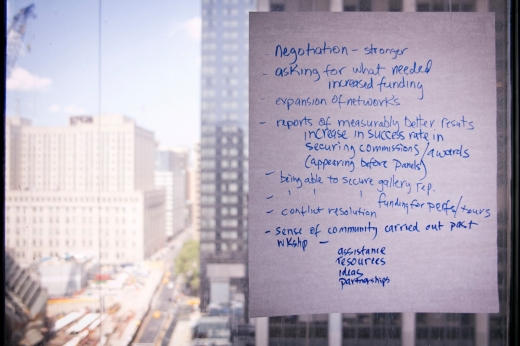 negotiation - stronger
- asking for what needed
increased funding
- expansion of networks
- reports of measurably better results
increase in success rate in
securing commissions/awards
(appearing before panels)
- being able to secure gallery rep.
- " " " funding for perfs/tours
- conflict resolution
- sense of community carried out past
wkshp -
assistance
resources
ideas
partnerships